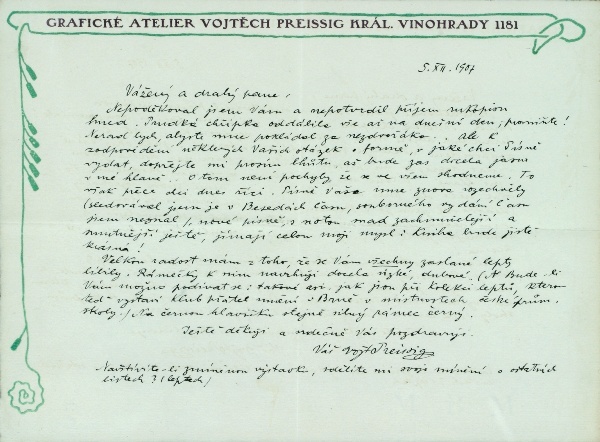 GRAFICKÉ ATELIER VOJTĚCH PREISSIG KRÁL. VINOHRADY 1181
5. XII. 1907
Vážený a drahý pane,
Nepoděkoval jsem Vám a nepotvrdil příjem rukopisu
hned. Prudká chřipka oddálila vše až na dnešní den; promiňte!
Nerad bych, abyste mne pokládal za nezdvořáka.. Ale k
zodpovědění některých Vašich otázek o formě, v jaké chci Písně
vydat, dopřejte mi prosím lhůtu, až bude zas docela jasno
v mé hlavě. O tom není pochyby že se ve všem shodneme. To
však přece dei dnes říci. Písně Vaše mne znova rozechvěly
(sledoval jsem je v Besedách Času, souborného vydání Času
jsem neznal), nové písně, s notou snad zachmuřenější a
smutnější ještě, jímají celou moji mysl; kniha bude jistě
krásná!
Velkou radost mám z toho, že se Vám všechny zaslané lepty
líbily. Rámečky k nim navrhuji docela úzké, dubové. (A Bude-li
Vám možno podívat se: takové asi jak jsou při kolekci leptů, kterou
teď vystaví Klub přátel umění v Brně v místnostech české prům.
školy.) Na černou hlavičku stejně silný rámec černý.
Ještě děkuji a srdečně Vás pozdravuji.
Váš Vojt Preissig
Navštívíte-li zmíněnou výstavku, sdělíte mi svoje mínění o ostatních
listech? (leptech)